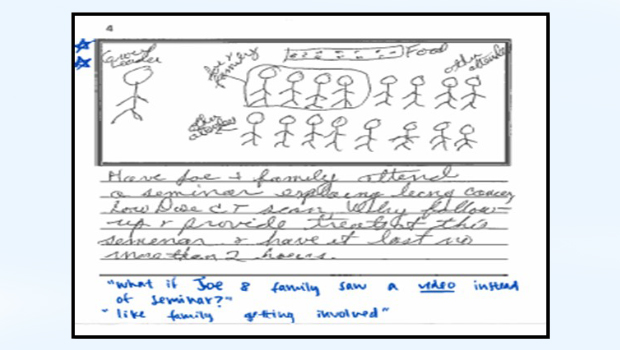 4
Group
Leader
Joe &
Family
Food
other
other
Have Joe & family attend
a seminar explaing lung cancer
Low Dose CT scan Why follow-
up & provide this
semenar & have it last no
more than 2 hours.
"what if Joe & family saw a video instead
of seminar?"
"like family getting involved"